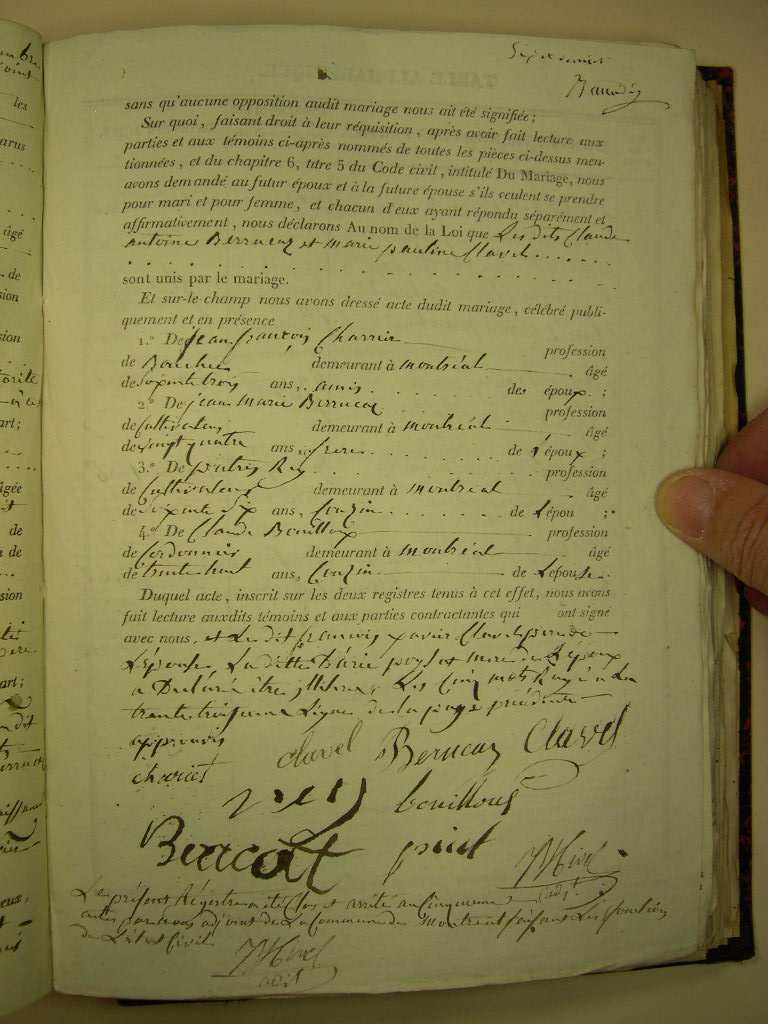 sans qu'aucune opposition audit mariage nous ait été signifiée ;
Sur quoi, faisant droit à leur réquisition, après avoir fait lecture aux
parties et aux témoins ci-après nommés de toutes les pièces ci-dessus men-
tionnées, et du chapitre 6, titre 5 du Code civil, intitulé Du Mariage, nous
avons demandé au futur époux et à la future épouse s'ils veulent se prendre
pour mari et pour femme, et chacun d'eux ayant répondu séparément et
affirmativement, nous déclarons Au nom de la Loi que Lesdits Claude
Antoine Berrucaz et Marie pauline Clavel
sont unis par le mariage.
Et sur-le-champ nous avons dressé acte dudit mariage, célébré publi-
quement et en présence
1.° De jean françois Charrier profession
de demeurant à montréal âgé
de soixente trois ans, amis des époux ;
2.° De jean Marie Berrucaz profession
de Cultivateur demeurant à montréal âgé
de vingt quatre ans, frere de l'époux ;
3.° De profession
de Cultivateur demeurant à montréal âgé
de soixente six ans, Couzin de L'épou ;
4.° De Claude Bouilloux profession
de Cordonnier demeurant à montréal âgé
de trente huit ans, Couzin de L'épouse.
Duquel acte, inscrit sur les deux registres tenus à cet effet, nous avons
fait lecture auxdits témoins et aux parties contractantes qui ont signé
avec nous, et Le dit francois xavier Clavel pere de
L'épouse, La ditte mere de L'epoux
a Déclaré être jlleteré, Les Cinq mots Rayé a La
trente troisieme Ligne de la page précédente
approuvés
clavel Berrucaz Clavel
charier
rey bouilloux
Le présent Régistre a été Clos et arrêté au Cinquieme
actes par nous adjoint de La Commune de Montréal faisant Les fonctions
de L'état Civil